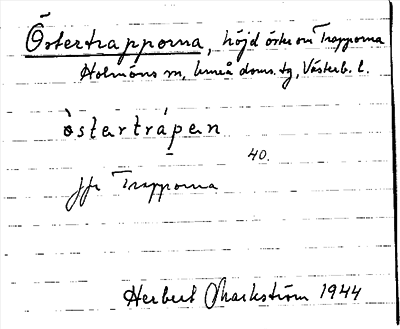 Östertrapporna, höjd öster om Trapporna
Holmöns sn, Umeå doms. tg, Västerb. l.
östertrápan
40.
Jfr Trapporna
Herbert Markström 1944